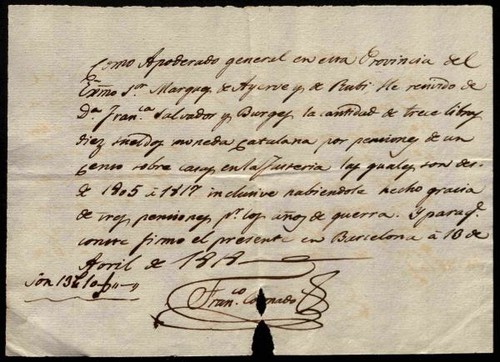 Como Apoderado general en esta Provincia del
Exmo Sor. Marques de Ayerve y de Rubi He reuido de
Da. Franca. Salvador y Burges la cantidad de trece libras
diez sueldos moneda catalana por penciones de un
censo sobre casas en la los quales son des-
de 1805 à 1817 inclusive habiendole hecho gracia
de tres penciones pr. los años de guerra. Y paraq.
conste firmo el presente en Barcelona à 18 de
Abril de 1818
Son 13 ₶ 10
Franco. Coronado